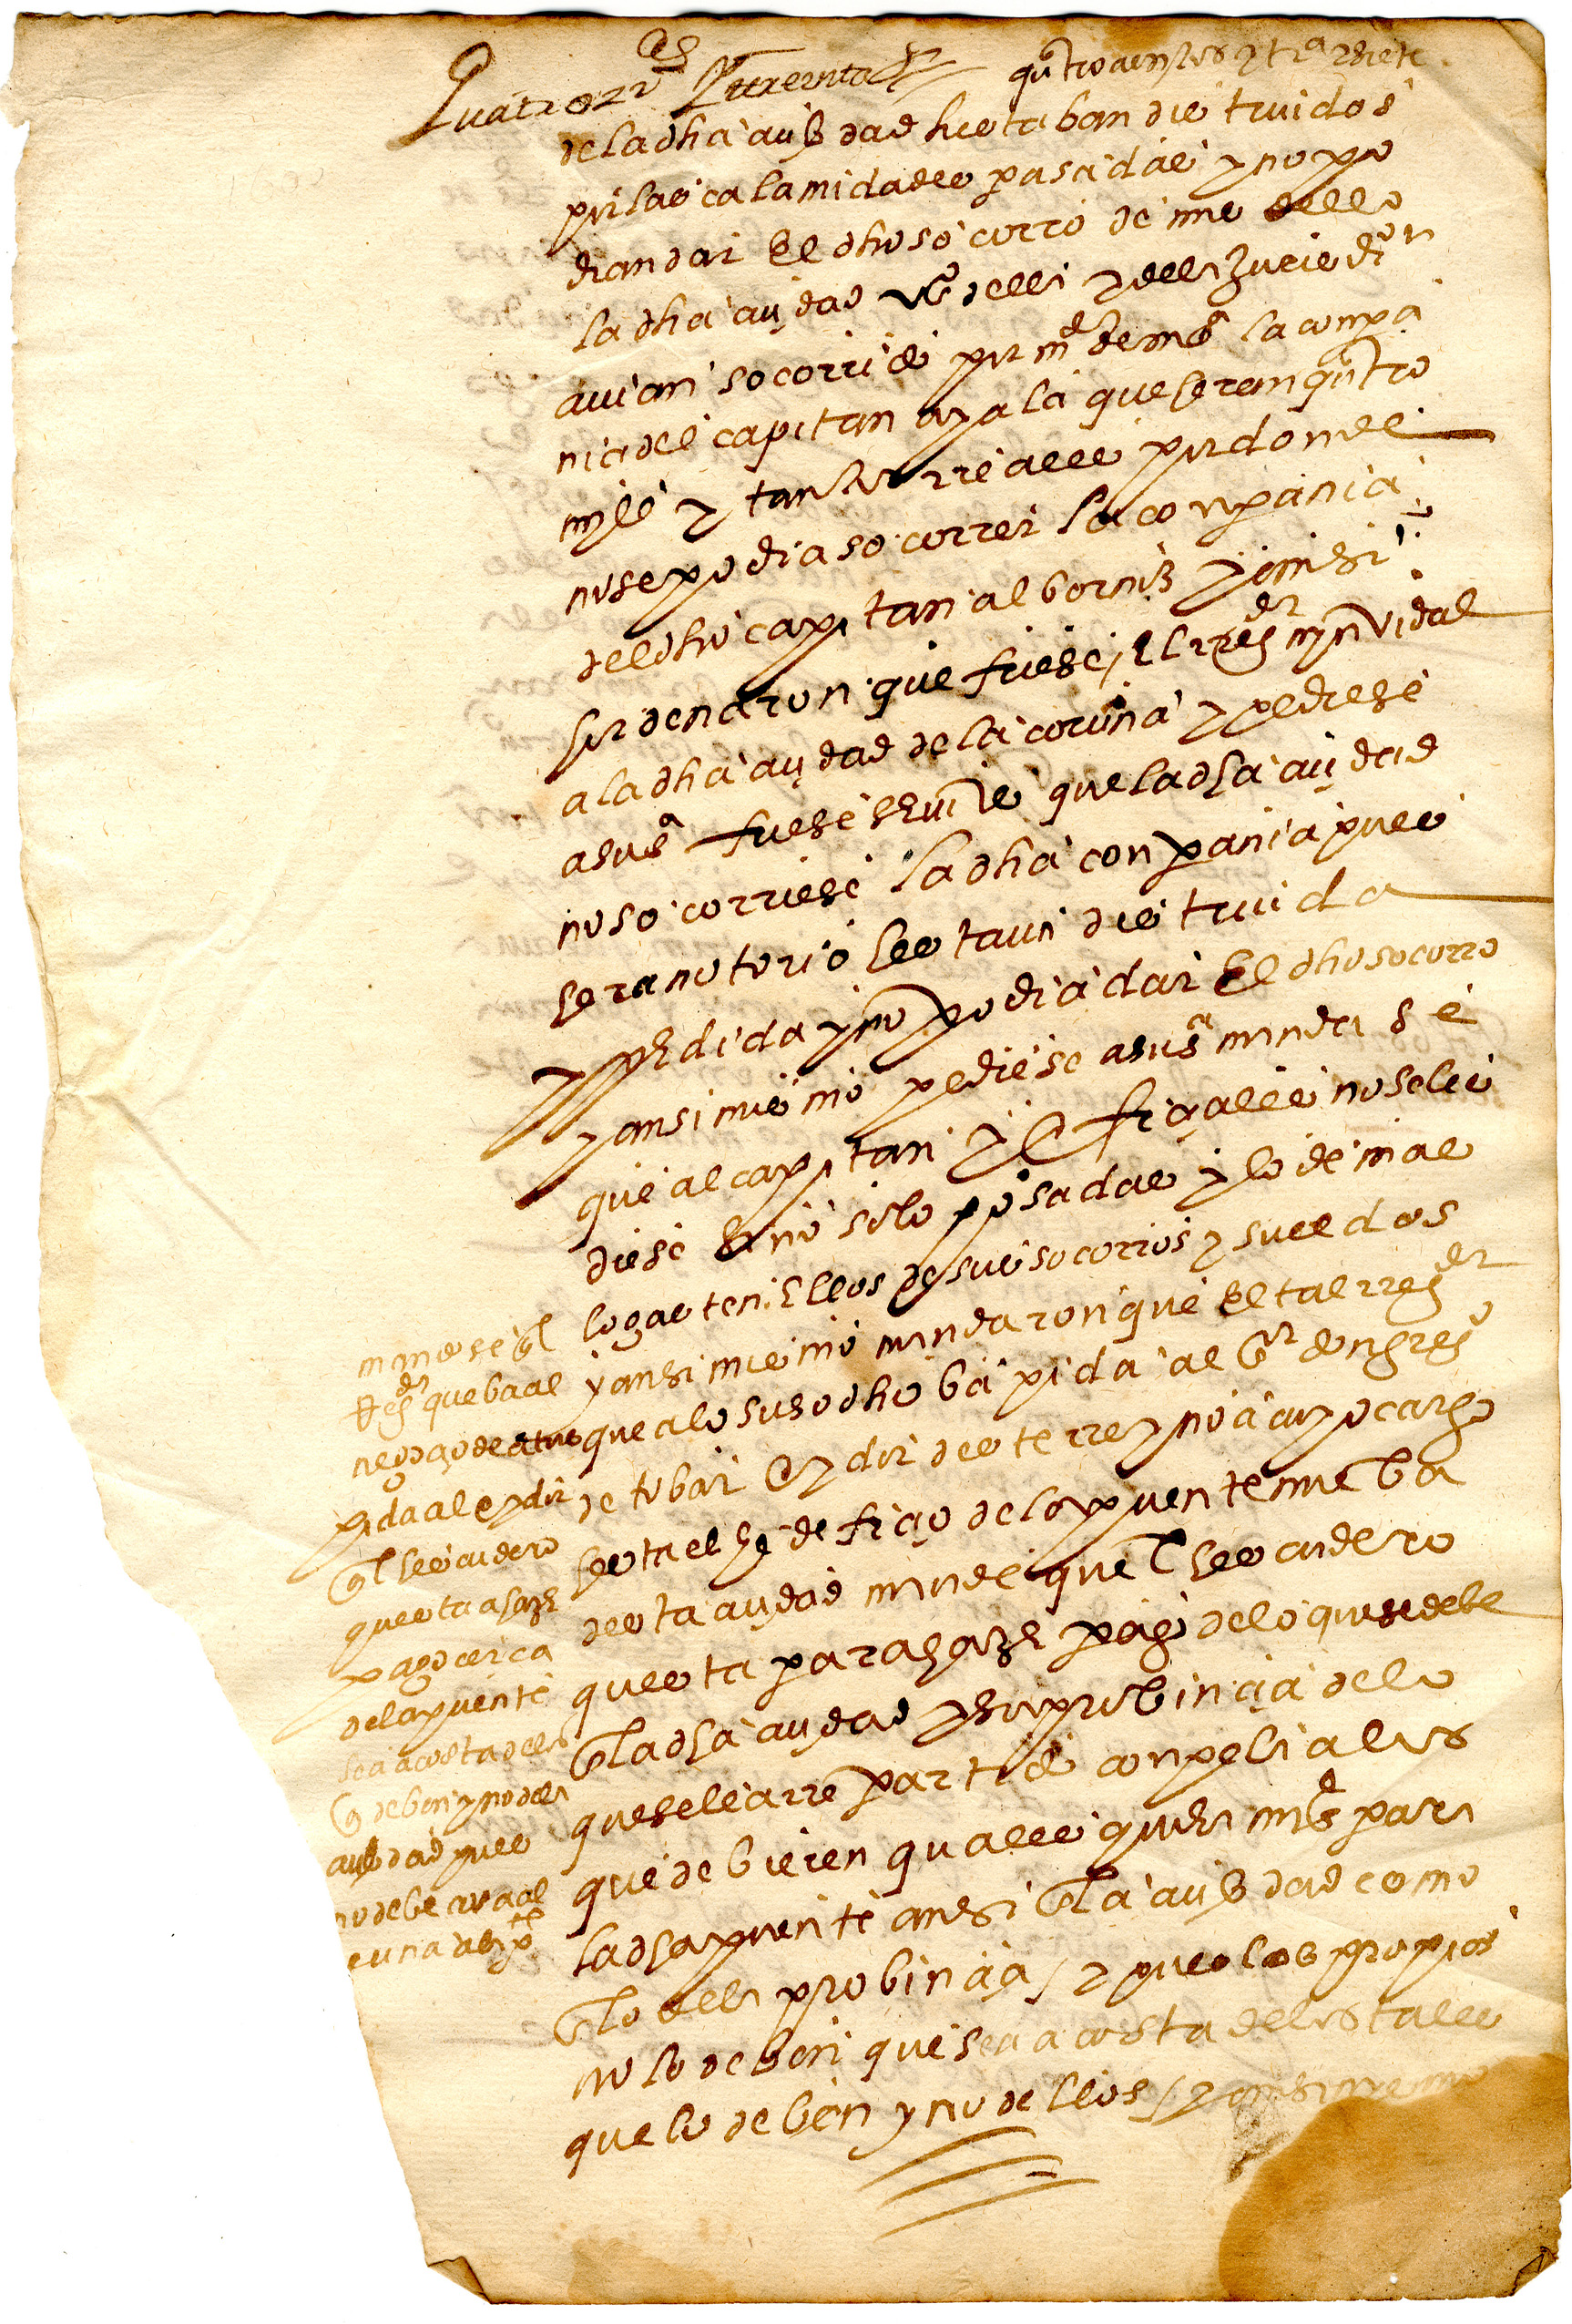 quatroçientos y tra y siete
de la dha çiubdad y estaban destruidos
por las calamidades pasadas y no po
dian dar el dho socorro demas dello
la dha çiudad vos della y de su juridion
avian socorrido por mdo de su sa la conpa
nia del capitan ayala que heran quatro
mill y tantos rreales por donde
no se podia socorrer la conpania
del dho capitan albornoz y ansi
hordenaron que fuese el rregor mn vidal
a la dha çiudad de la coruña y pediese
a su sa fuese servido que la dha çiudad
no socorriese la dha conpania pues
hera notorio estaua destruida
y perdida y no podia dar el dho socorro
y ansimesmo pediese a su sa mandase
que al capitan y ofiçiales no se les
diese sino solo posadas y lo demas
lo gasten ellos de sus socorros y sueldos
y ansimesmo mandaron que el tal rregor
que a lo susodho ba pida al sor don grego
de tobar oydor deste rreyno a cuyo cargo
esta el hedefiçio de la puente nueba
desta çiudad mande quel escudero
questa para hazer pago de lo que se debe
en la dha çiudad y su probinçia de lo
que se le a rrepartido conpela a los
que debieren quales quier mrs para
la dha puente ansi en la çiubdad como
en lo de la probinçia / y pues los propios
no lo deben que sea a costa de los tales
que lo deben y no dellos / y ansimesmo
mandose quel
regor que ba al
negoçio de atras
pida al oydor
quel escudero
questa a hazer
pago cerca
de la puente
sea a costa de los
que deben y no de la
çiubdad pues
no debe cosa al